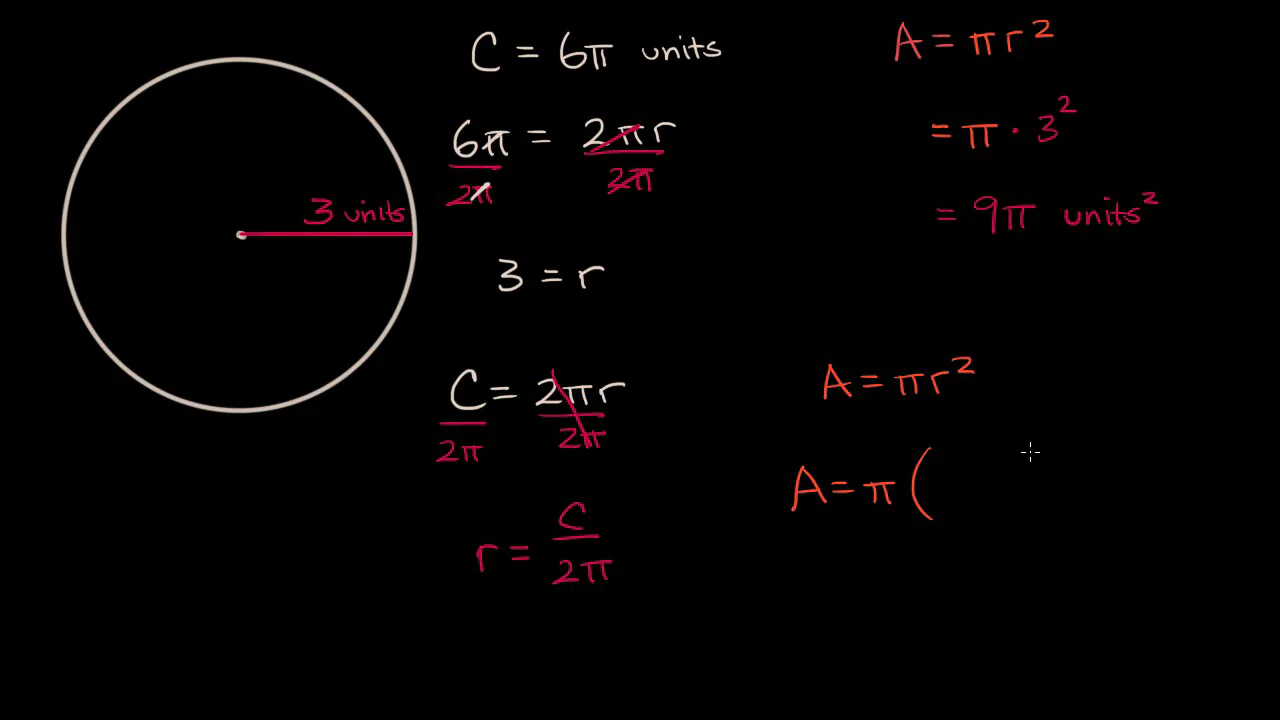 3 units
C = 6π units
6π = 2πr
2π 2π
3 = r
C = 2πr
2π 2π
r = C
2π
A = πr²
= π · 3²
= 9π units²
A = πr²
A = π (